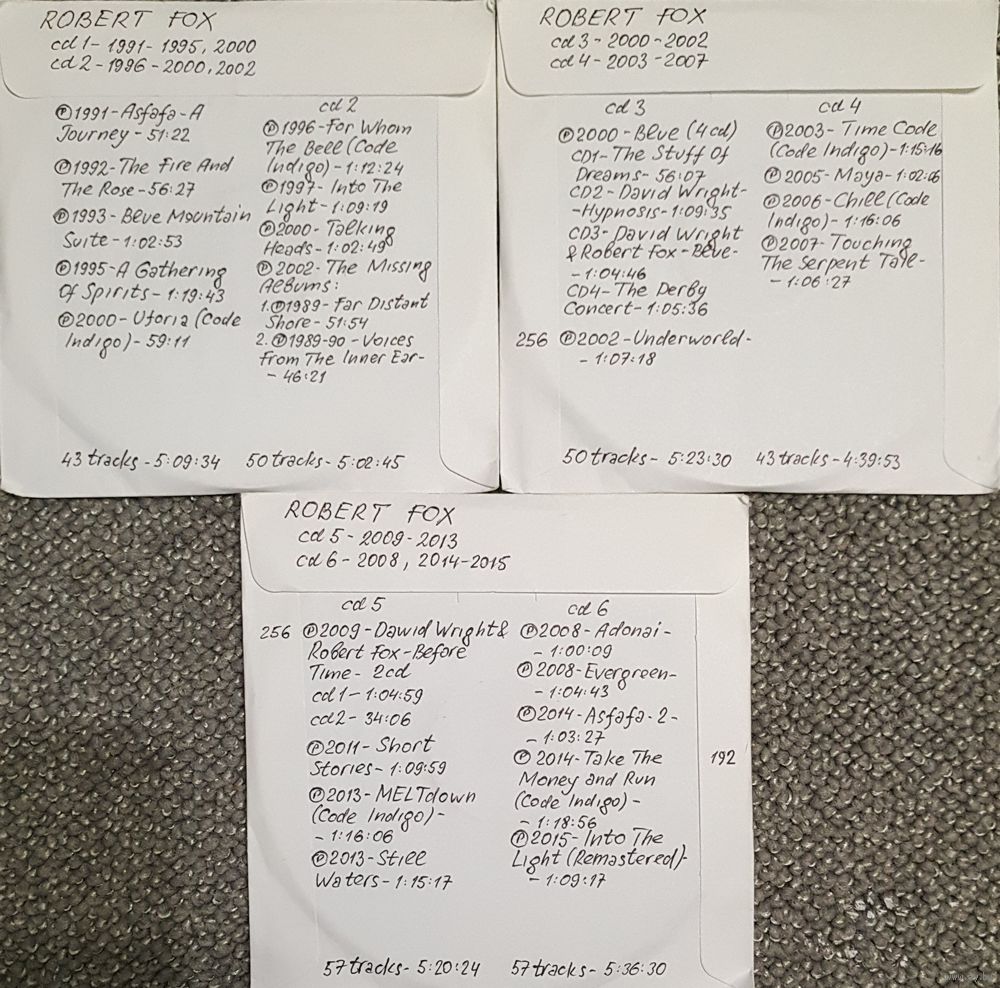 ROBERT FOX
cd 1- 1991- 1995, 2000
cd 2 - 1996 - 2000, 2002
Ⓟ1991-Asfafa-A
Journey - 51:22
Ⓟ1992-The Fire And
The Rose-56:27
Ⓟ1993- Blue Mountain
Suite-1:02:53
Ⓟ1995-A Gathering
Of Spirits- 1:19:43
Ⓟ2000-Uforia (Code
Indigo)- 59:11
43 tracks - 5:09:34
cd 2
Ⓟ1996-For Whom
The Bell (Code
Indigo)-1:12:24
Ⓟ1997- Into The
Light-1:09:19
Ⓟ2000- Talking
Heads- 1:02:49
Ⓟ2002- The Missing
Albums:
1.Ⓟ1989- Far Distant
Shore- 51:54
2.Ⓟ1989-90 - Voices
From The Inner Ear-
- 46:21
50 tracks- 5:02:45
ROBERT FOX
cd 3 - 2000 - 2002
cd 4 - 2003 - 2007
cd 3
Ⓟ2000-Blue (4cd)
CD1- The Stuff Of
Dreams- 56:07
CD2- David Wright-
-Hypnosis-1:09:35
CD3- David Wright
& Robert Fox-Blue-
- 1:04:46
CD4-The Derby
Concert-1:05:36
256 Ⓟ2002-Underworld-
- 1:07:18
50 tracks- 5:23:30
cd 4
Ⓟ2003- Time Code
(Code Indigo)-1:15:16
Ⓟ2005- Maya- 1:02:06
Ⓟ2006- Chill (Code
Indigo)- 1:16:06
Ⓟ2007- Touching
The Serpent Tale-
- 1:06:27
43 tracks -4:39:53
ROBERT FOX
cd 5 - 2009-2013
cd 6 - 2008, 2014-2015
cd 5
256 Ⓟ2009-Dawid Wright&
Robert Fox-Before
Time- 2cd
cd1- 1:04:59
cd2- 34:06
Ⓟ2011- Short
Stories- 1:09:59
Ⓟ2013- MELTdown
(Code Indigo)-
- 1:16:06
Ⓟ2013-Still
Waters-1:15:17
57 tracks- 5:20:24
cd 6
Ⓟ2008-Adonai-
- 1:00:09
Ⓟ2008-Evergreen-
- 1:04:43
Ⓟ2014-Asfafa-2-
- 1:03:27
Ⓟ 2014-Take The
Money and Run
(Code Indigo) -
- 1:18:56
Ⓟ2015-Into The
Light (Remastered)-
- 1:09:17
192
57 tracks- 5:36:30